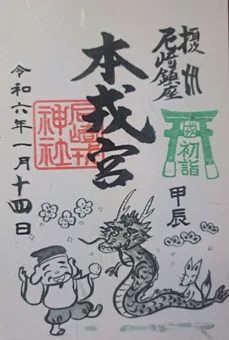 摂州
尼崎鎮座
初詣
甲辰
本戎宮
尼崎戎
神社
令和六年一月十四日